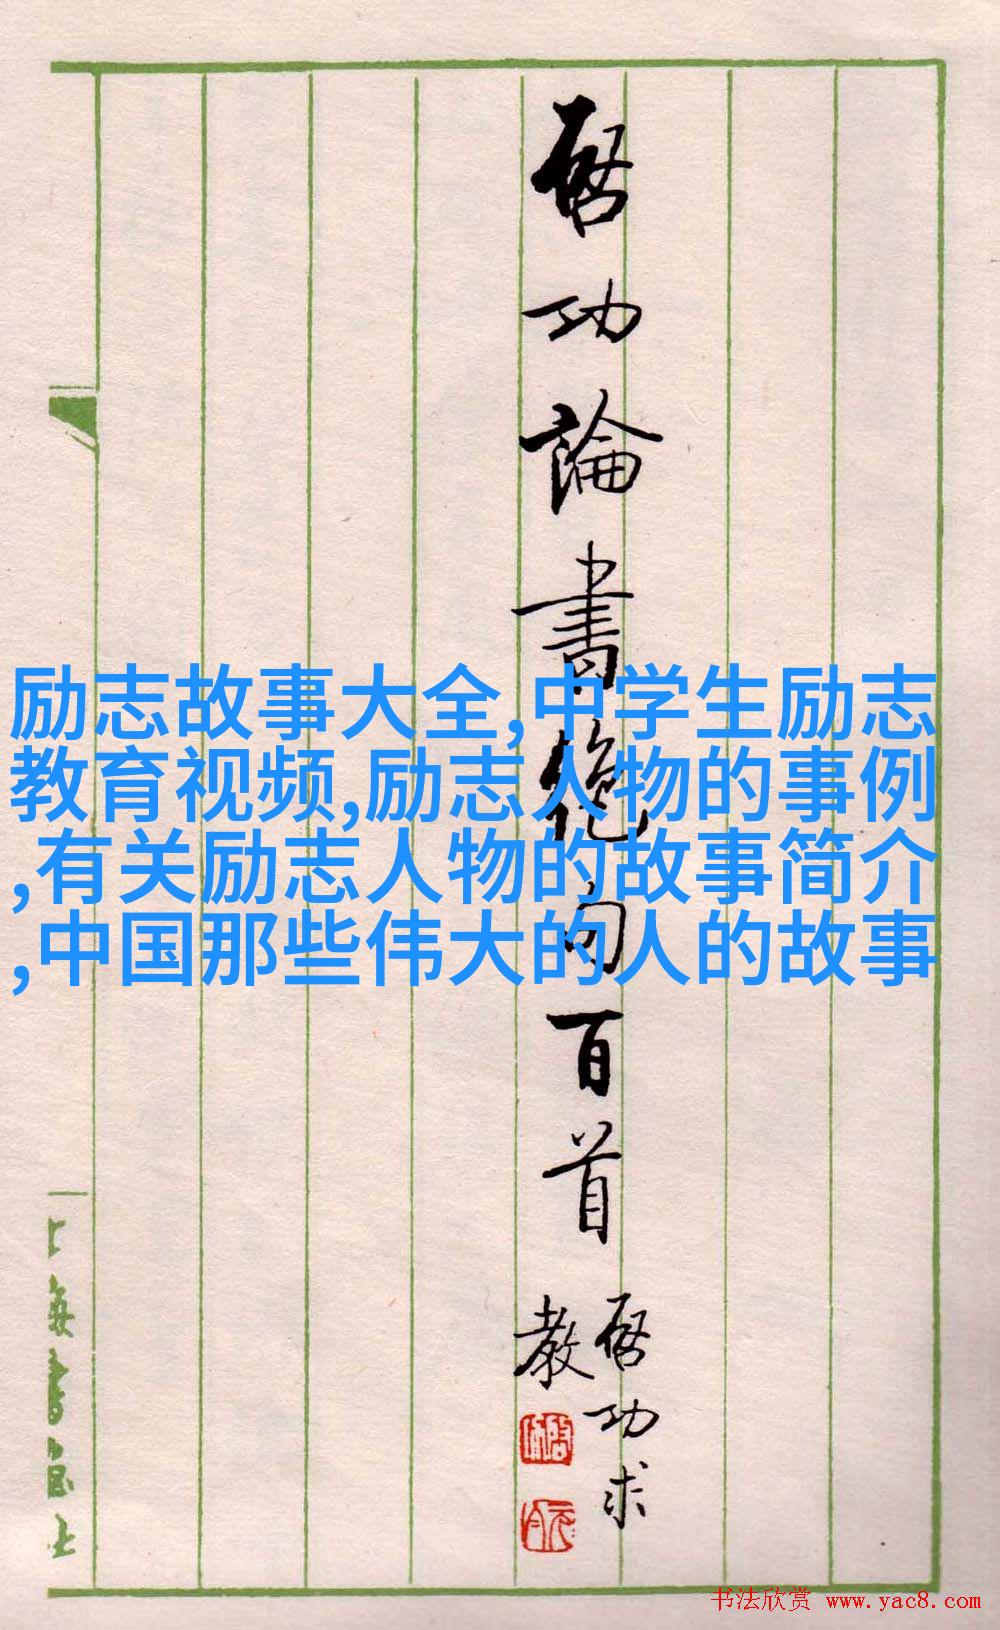 啓功論書絶句百首
啓功求
教
励志故事大全,中学生励志
教育视频,励志人物的事例
,有关励志人物的故事简介
,中国那些伟大的人的故事
上海書画社
书法欣赏 www.yac8.com